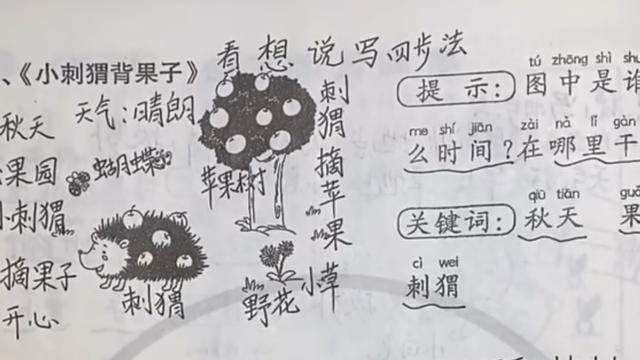 看想说写四步法
、《小刺猬背果子》
秋天 天气:晴朗
果园 蝴蝶
小刺猬
摘果子
开心
苹果树
刺猬摘苹果
刺猬
野花 小草
tú zhōng shì
提示: 图中是谁
me shí jiān zài nǎ lǐ gàn
么时间?在哪里干
qiū tiān guǒ
关键词: 秋天 果
cì wei
刺猬